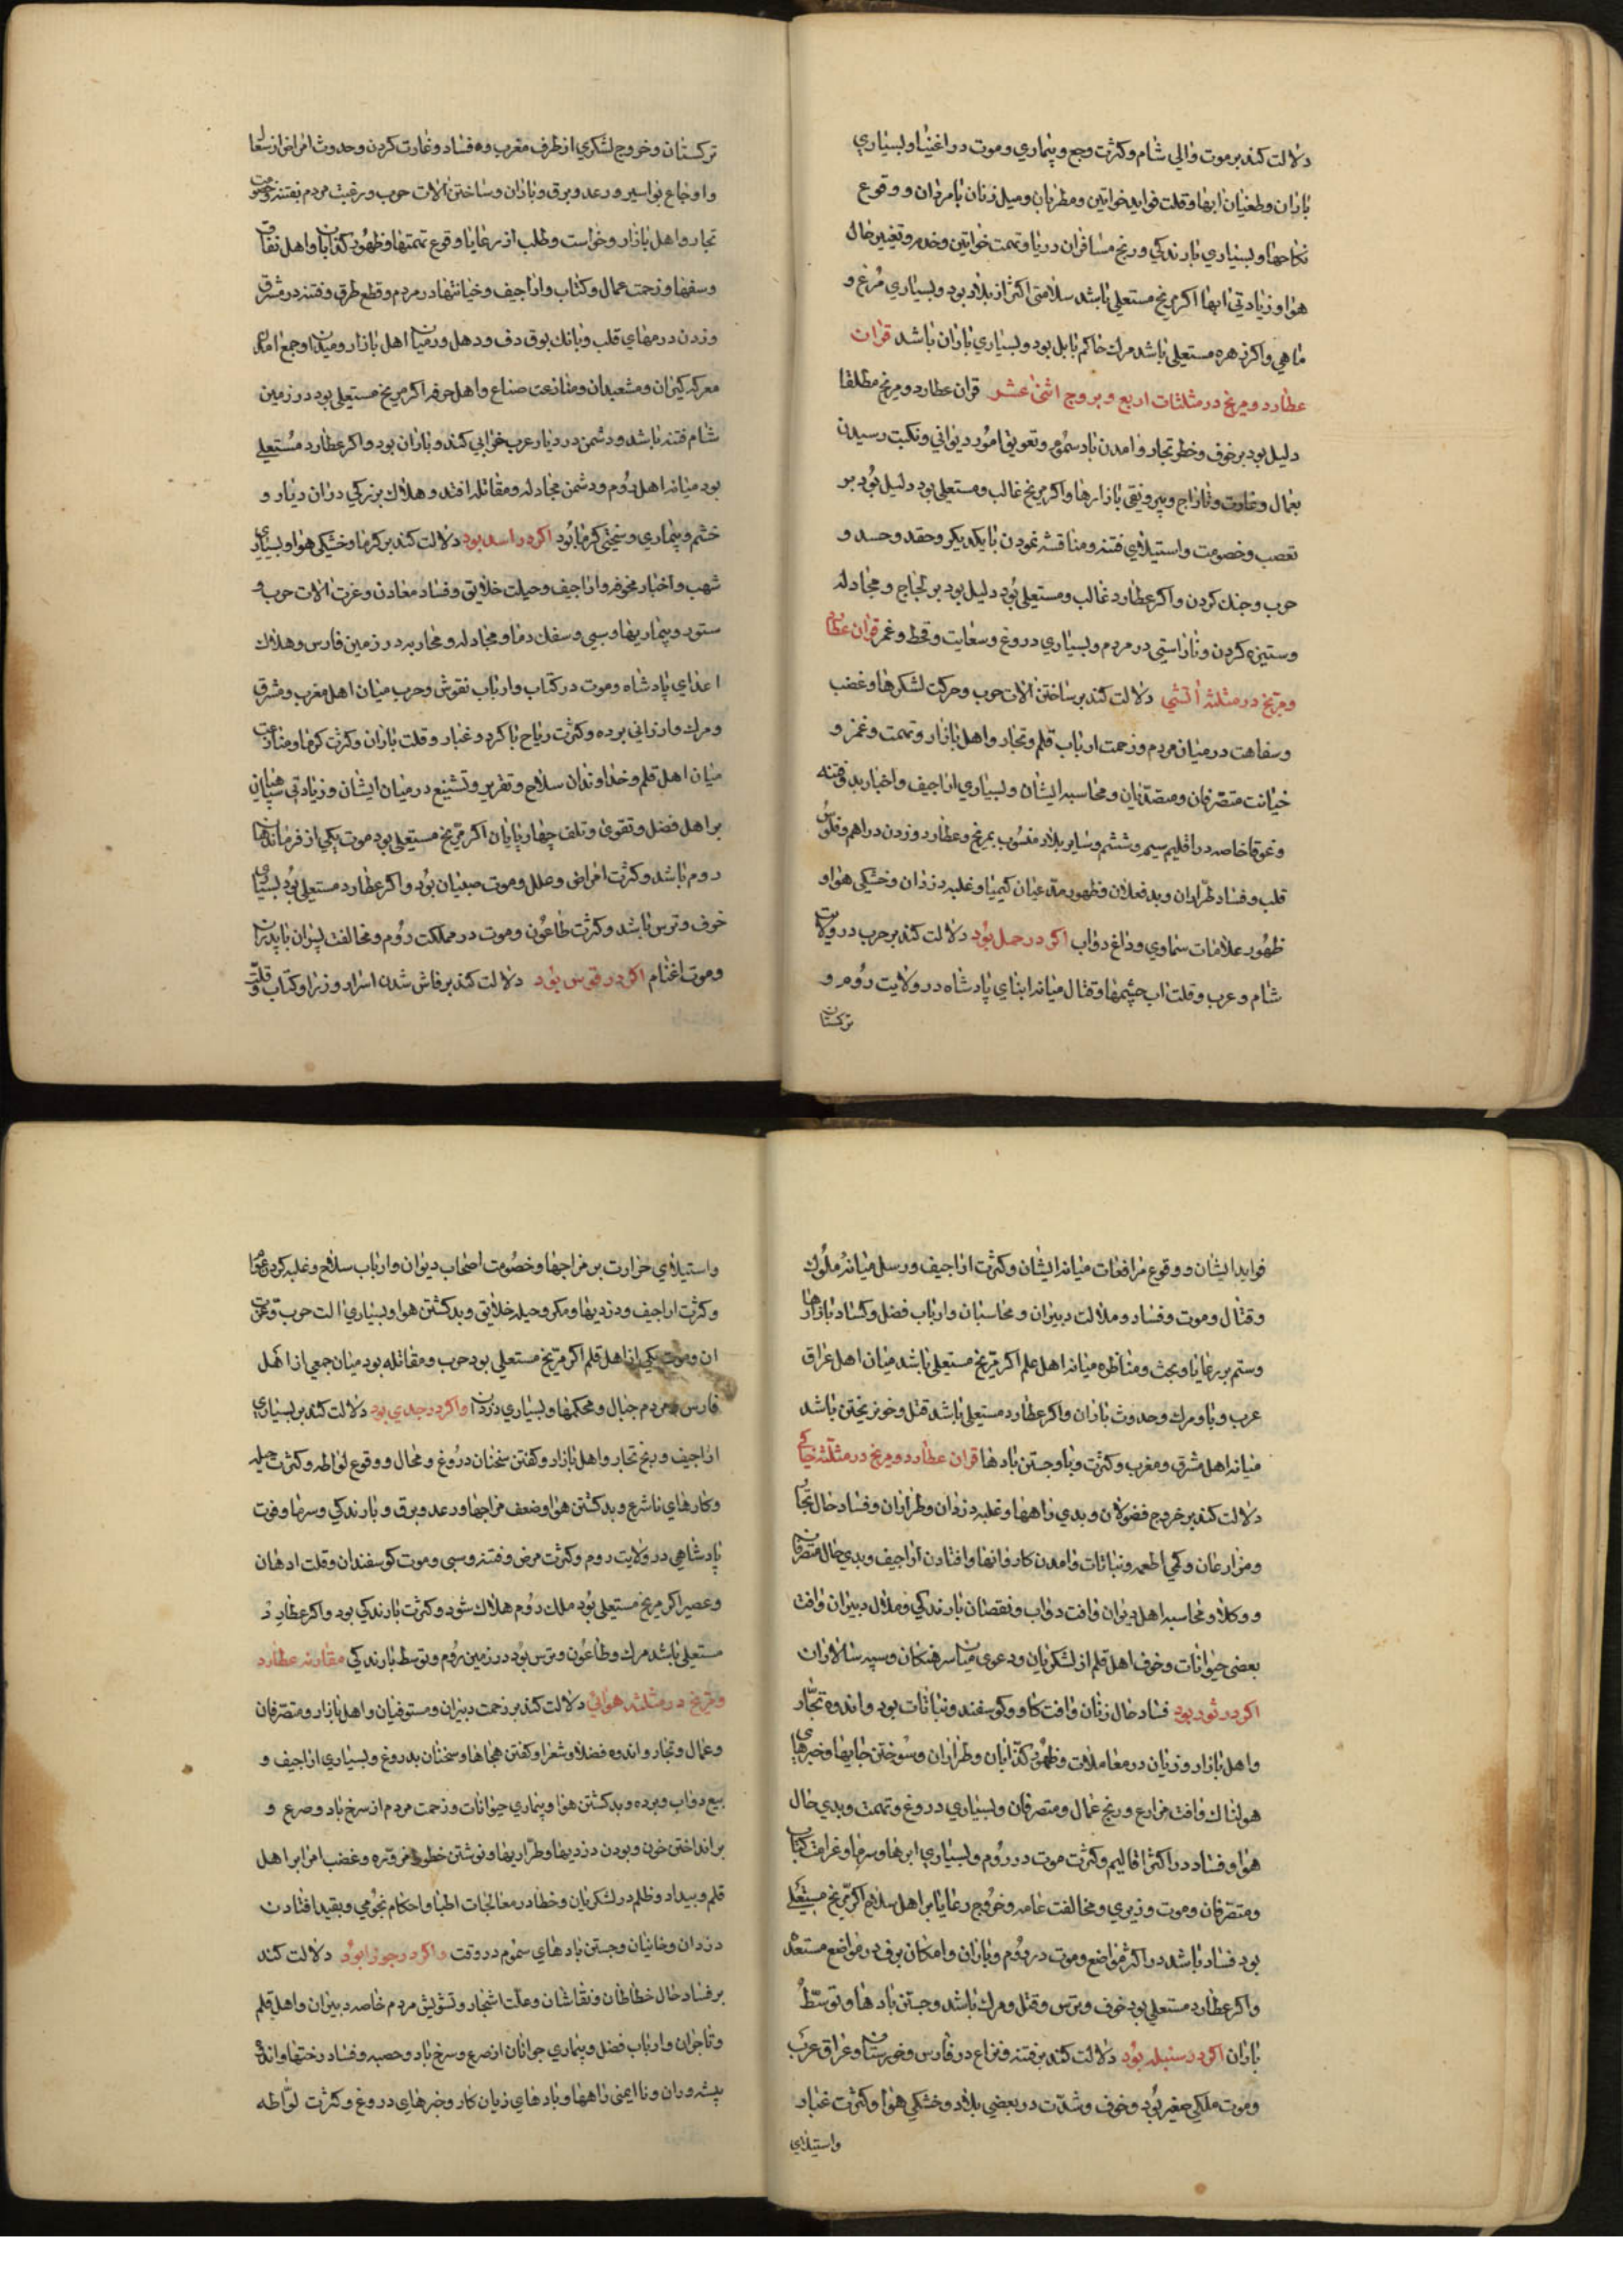 دلالت کند بر موت والی شام و کثرت وجع و بیماری و موت در اغنیا و بسیاری
باران و طغیان ابها و قلت فواید خواتین و مطربان و میل زنان بامردان و وقوع
نکاحها و بسیاری بارندکی و رنج مسافران دریا و تهمت خواتین و خدم و تغییر حال
هوا و زیادتی ابها اکر مریخ مستعلی باشد سلامتی اکثر از بلاد بود و بسیاری مرغ و
ماهی و اکر زهره مستعلی باشد مرك حاکم بابل بود و بسیاری باران باشد قران
عطارد و مریخ در مثلثات اربع و بروج اثنی عشر قران عطارد و مریخ مطلقا
دلیل بود بر خوف و خطر تجار و امدن باد سموم و تعویق امور دیوانی و نکبت رسیدن
بعمال و غارت و تاراج و بیرونقی بازارها و اکر مریخ غالب و مستعلی بود دلیل بود بر
تعصب و خصومت و استیلای فتنه و مناقشه نمودن با یکدیکر و حقد و حسد و
حرب و جنك کردن و اکر عطارد غالب و مستعلی بود دلیل بود بر لجاج و مجادله
و ستیزه کردن و ناراستی در مردم و بسیاری دروغ و سعایت و قحط و غم قران عطارد
و مریخ در مثلثه اتشی دلالت کند بر ساختن الات حرب و حرکت لشکرها و غضب
و سفاهت در میان مردم و زحمت ارباب قلم و تجار و اهل بازار و تهمت و غمز و
خیانت متصرفان و متصدیان و محاسبه ایشان و بسیاری اراجیف و اخبار بد و فتنه
و غوغا خاصه در اقلیم سیم و ششم و سایر بلاد منسوب بمریخ و عطارد و زدن دراهم و فلوس
قلب و فساد طراران و بدفعلان و ظهور مدعیان کیمیا و غلبه دزدان و خشکی هوا و
ظهور علامات سماوی و داغ دواب اکر در حمل بود دلالت کند بر حرب در ولایت
شام و عرب و قلت اب چشمها و قتال میانه ابنای پادشاه در ولایت روم و
ترکستان
ترکستان و خروج لشکری از طرف مغرب و فساد و غارت کردن و حدوث امراض از
و اوجاع بواسیر و رعد و برق و باران و ساختن الات حرب و رغبت مردم بفتنه و خصومت
تجار و اهل بازار و خواست و طلب از رعایا و وقوع تهمتها و ظهور کذابان و اهل نفاق
و سفها و زحمت عمال و کتاب و اراجیف و خیانتها در مردم و قطع طرق و فتنه در مشرق
و زدن درمهای قلب و بانك بوق دف و دهل و رمیان اهل بازار و میدان و جمع امدن
معرکه کیران و مشعبدان و منازعت صناع و اهل حرفه اکر مریخ مستعلی بود در زمین
شام فتنه باشد و دشمن در دیار عرب خرابی کند و باران بود و اکر عطارد مستعلی
بود میانه اهل روم و دشمن مجادله و مقاتله افتد و هلاك بزرکی در ان دیار و
خشم و بیماری و سختی کرما بود اکر در اسد بود دلالت کند بر کرما و خشکی هوا و بسیاری
شهب و اخبار مخوفه و اراجیف و حیلت خلایق و فساد معادن و عزت الات حرب و
ستور و بیماریها و سبی و سفك دما و مجادله و محاربه در زمین فارس و هلاك
اعدای پادشاه و موت در کتاب و ارباب نقوش و حرب میان اهل مغرب و مشرق
و مرك و ارزانی برده و کثرت ریاح با کرد و غبار و قلت باران و کثرت کرما و منازعت
میان اهل قلم و خداوندان سلاح و تقریر و تشنیع در میان ایشان و زیادتی سپاهیان
بر اهل فضل و تقوی و تلف چهارپایان اکر مریخ مستعلی بود موت یکی از فرماندهان
روم باشد و کثرت امراض و علل و موت صبیان بود و اکر عطارد مستعلی بود بسیاری
خوف و ترس باشد و کثرت طاعون و موت در مملکت روم و مخالفت پسران با پدران
و موت اغنام اکر در قوس بود دلالت کند بر فاش شدن اسرار وزرا و کتاب و قلت
فواید ایشان و وقوع مرافعات میانه ایشان و کثرت اراجیف و رسل میانه ملوك
و قتال و موت و فساد و ملالت دبیران و محاسبان و ارباب فضل و کساد بازارها
و ستم بر رعایا و بحث و مناظره میانه اهل علم اکر مریخ مستعلی باشد میان اهل عراق
عرب وبا و مرك و حدوث باران و اکر عطارد مستعلی باشد قتل و خون ریختن باشد
میانه اهل مشرق و مغرب و کثرت وبا و جستن بادها قران عطارد و مریخ در مثلثه خاکی
دلالت کند بر خروج فضولان و بدی راهها و غلبه دزدان و طراران و فساد حال تجار
و مزارعان و کمی اطعمه و نباتات و امدن کاروانها و افتادن اراجیف و بدی حال متصرفان
و وکلا و محاسبه اهل دیوان و افت دواب و نقصان بارندکی و ملال دبیران و افت
بعضی حیوانات و خوف اهل قلم از لشکریان و دعوی میان سرهنکان و سپه سالاران
اکر در ثور بود فساد حال زنان و افت کاو و کوسفند و نباتات بود و اندوه تجار
و اهل بازار و زیان در معاملات و ظهور کذابان و طراران و سوختن جایها و خبرهای
هولناك و افت مزارع و رنج عمال و متصرفان و بسیاری دروغ و تهمت و بدی حال
هوا و فساد در اکثر اقالیم و کثرت موت در روم و بسیاری ابرها و سرما و غرامت کتاب
و متصرفان و موت وزیری و مخالفت عامه و خروج رعایا بر اهل سلاح اکر مریخ مستعلی
بود فساد باشد در اکثر مواضع و موت در روم و باران و امکان برف در مواضع مستعده
و اکر عطارد مستعلی بود خوف و ترس و قتل و مرك باشد و جستن بادها و توسط
باران اکر در سنبله بود دلالت کند بر فتنه و نزاع در فارس و خورستان و عراق عرب
و موت ملکی صغیر بود و خوف و شدت در بعضی بلاد و خشکی هوا و کثرت غبار
واستیلای
و استیلای حرارت بر مزاجها و خصومت اصحاب دیوان و ارباب سلاح و غلبه کردن
و کثرت اراجیف و دزدیها و مکر و حیله خلایق و بد کشتن هوا و بسیاری الت حرب و عزت
ان و موت یکی از اهل قلم اکر مریخ مستعلی بود حرب و مقاتله بود میان جمعی از اهل
فارس و مردم جبال و محکمها و بسیاری دزدان و اکر در جدی بود دلالت کند بر بسیاری
اراجیف و رنج تجار و اهل بازار و کفتن سخنان دروغ و محال و وقوع لواطه و کثرت حیله
و کارهای ناشرع و بد کشتن هوا و ضعف مزاجها و رعد و برق و بارندکی و سرما و فوت
پادشاهی در ولایت روم و کثرت مرض و فتنه و سبی و موت کوسفندان و قلت ادهان
و عصیر اکر مریخ مستعلی بود ملك روم هلاك شود و کثرت بارندکی بود و اکر عطارد
مستعلی باشد مرك و طاعون و ترس بود در زمین روم و توسط بارندکی مقارنه عطارد
و مریخ در مثلثه هوائی دلالت کند بر زحمت دبیران و مستوفیان و اهل بازار و متصرفان
و عمال و تجار و اندوه فضلا و شعرا و کفتن هجاها و سخنان بدروغ و بسیاری اراجیف و
بیع دواب و برده و بد کشتن هوا و بیماری حیوانات و زحمت مردم از سرخ باد و صرع و
بر انداختن خون و بودن دزدیها و طراریها و نوشتن خطوط مزوره و غضب امرا بر اهل
قلم و بیداد و ظلم در لشکریان و خطا در معالجات اطبا و احکام نجومی و بقید افتادن
دزدان و خائنان و جستن بادهای سموم در وقت و اکر در جوزا بود دلالت کند
بر فساد حال خطاطان و نقاشان و علت اشجار و تشویش مردم خاصه دبیران و اهل قلم
و تاجران و ارباب فضل و بیماری جوانان از صرع و سرخ باد و حصبه و فساد رختها و اندوه
پیشه وران و ناایمنی راهها و بادهای زیان کار و خبرهای دروغ و کثرت لواطه